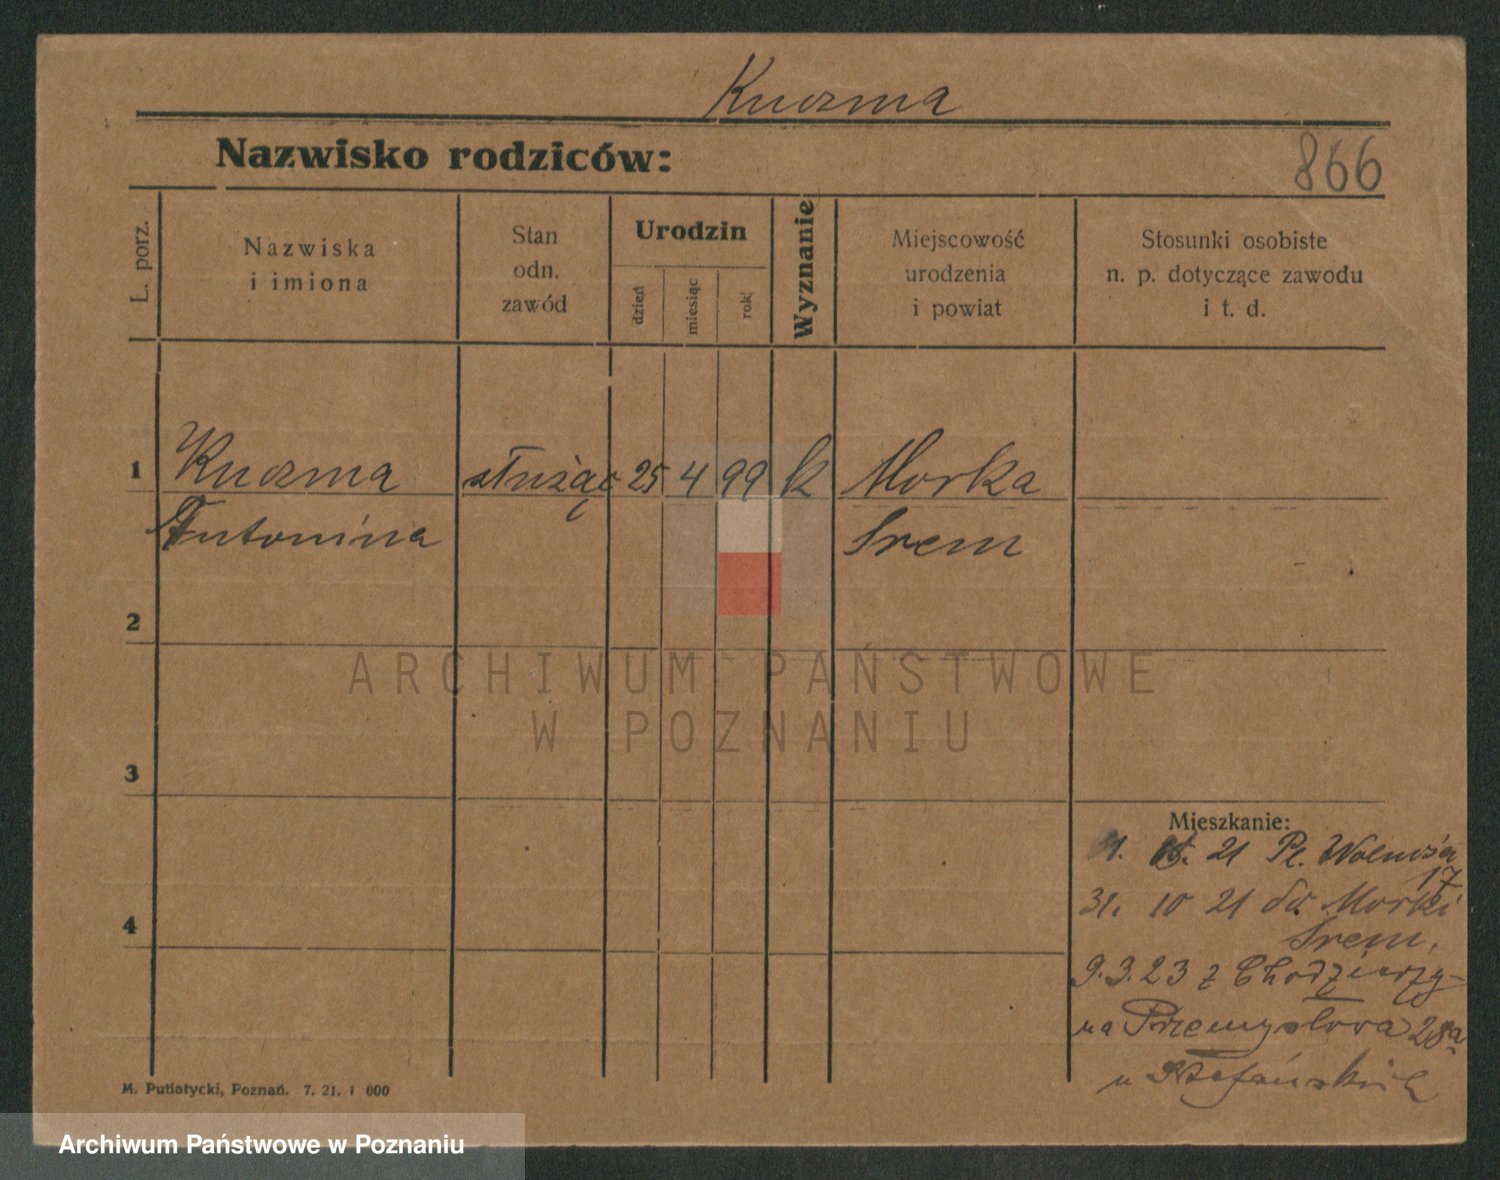 Kuczma
Nazwisko rodziców:
866
L. porz.
Nazwiska
i imiona
Stan
odn.
zawód
Urodzin
dzień
miesiąc
rok
Wyznanie
Miejscowość
urodzenia
i powiat
Stosunki osobiste
n. p. dotyczące zawodu
i t. d.
1 Kuczma służąc 25 4 99 k Morka
Antonina Srem
2
ARCHIWUM PAŃSTWOWE
W POZNANIU
3
Mieszkanie:
21 Pl. Wolności
17
31. 10 21 do Morki
4
Srem.
9.3.23 z Chodzieży
na Przemysłowa 28a
u Stefańskich
M. Putiatycki, Poznań. 7. 21. 1 000
Archiwum Państwowe w Poznaniu